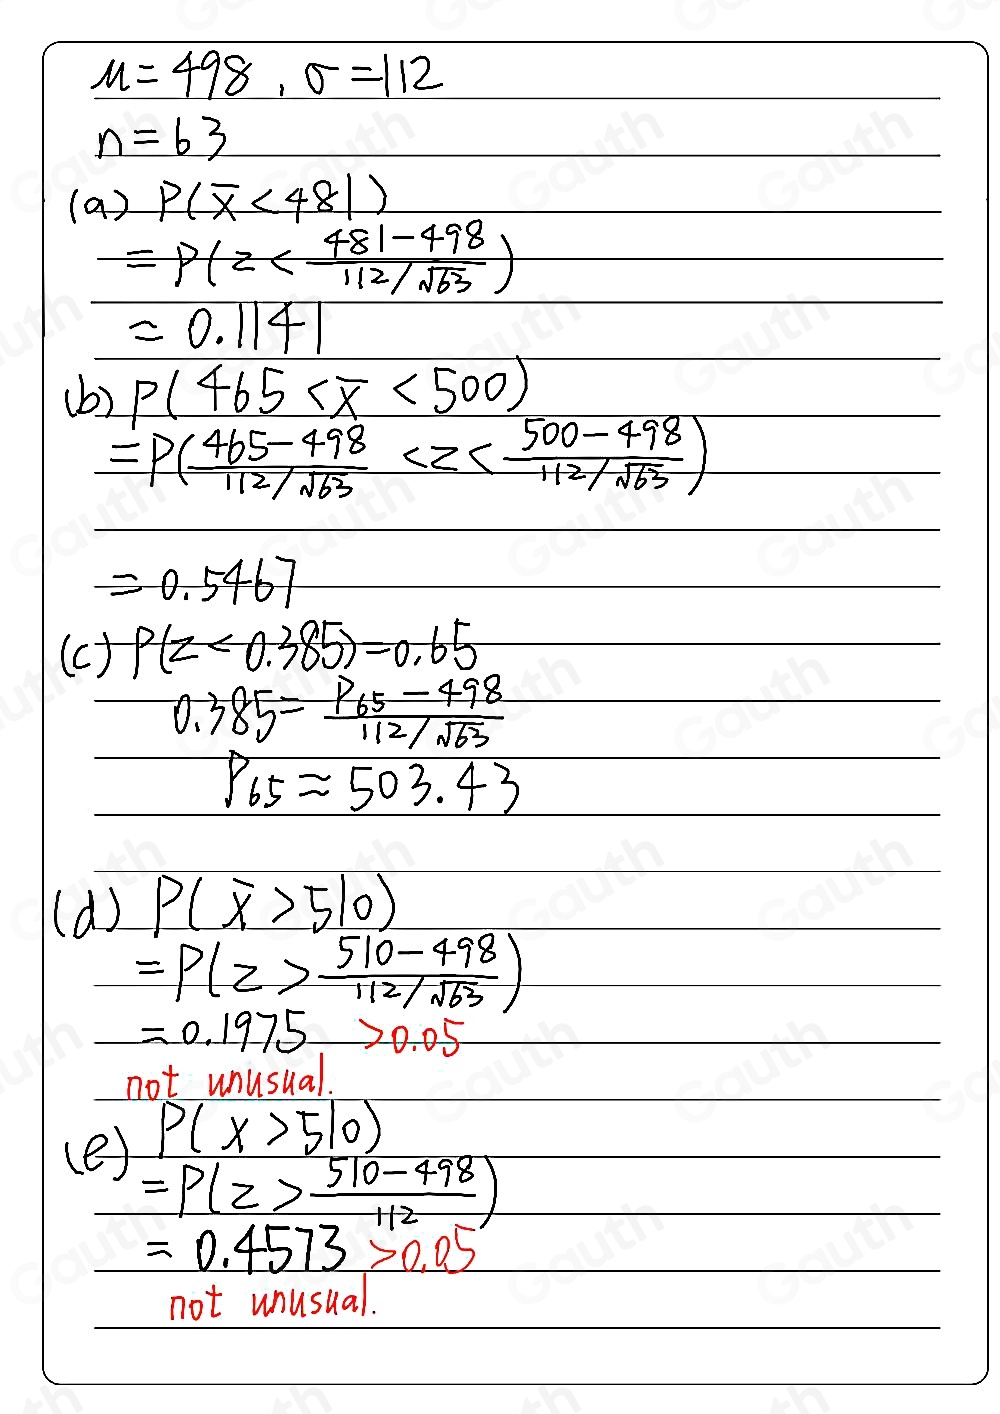 μ = 498, σ = 112
n = 63
(a) P(x̄ < 481)
= P(z < (481-498)/(112/√63))
≈ 0.1141
(b) P(465 < x̄ < 500)
= P((465-498)/(112/√63) < z < (500-498)/(112/√63))
= 0.5467
(c) P(z < 0.385) = 0.65
0.385 = (P₆₅ - 498)/(112/√63)
P₆₅ ≈ 503.43
(d) P(x̄ > 510)
= P(z > (510-498)/(112/√63))
= 0.1975 > 0.05
not unusual.
(e) P(x > 510)
= P(z > (510-498)/112)
= 0.4573 > 0.05
not unusual.